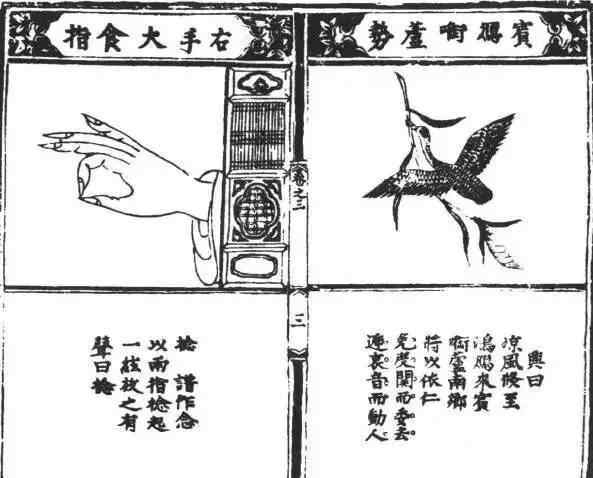 賓鴈啣蘆勢
興曰
涼風倐至
鴻鴈來賓
啣蘆南鄉
將以依仁
免雙關而委去
遞哀音而動人
卷之三
三
右手大食指
捻 譜作念
以兩指捻起
一絃放之有
聲曰捻